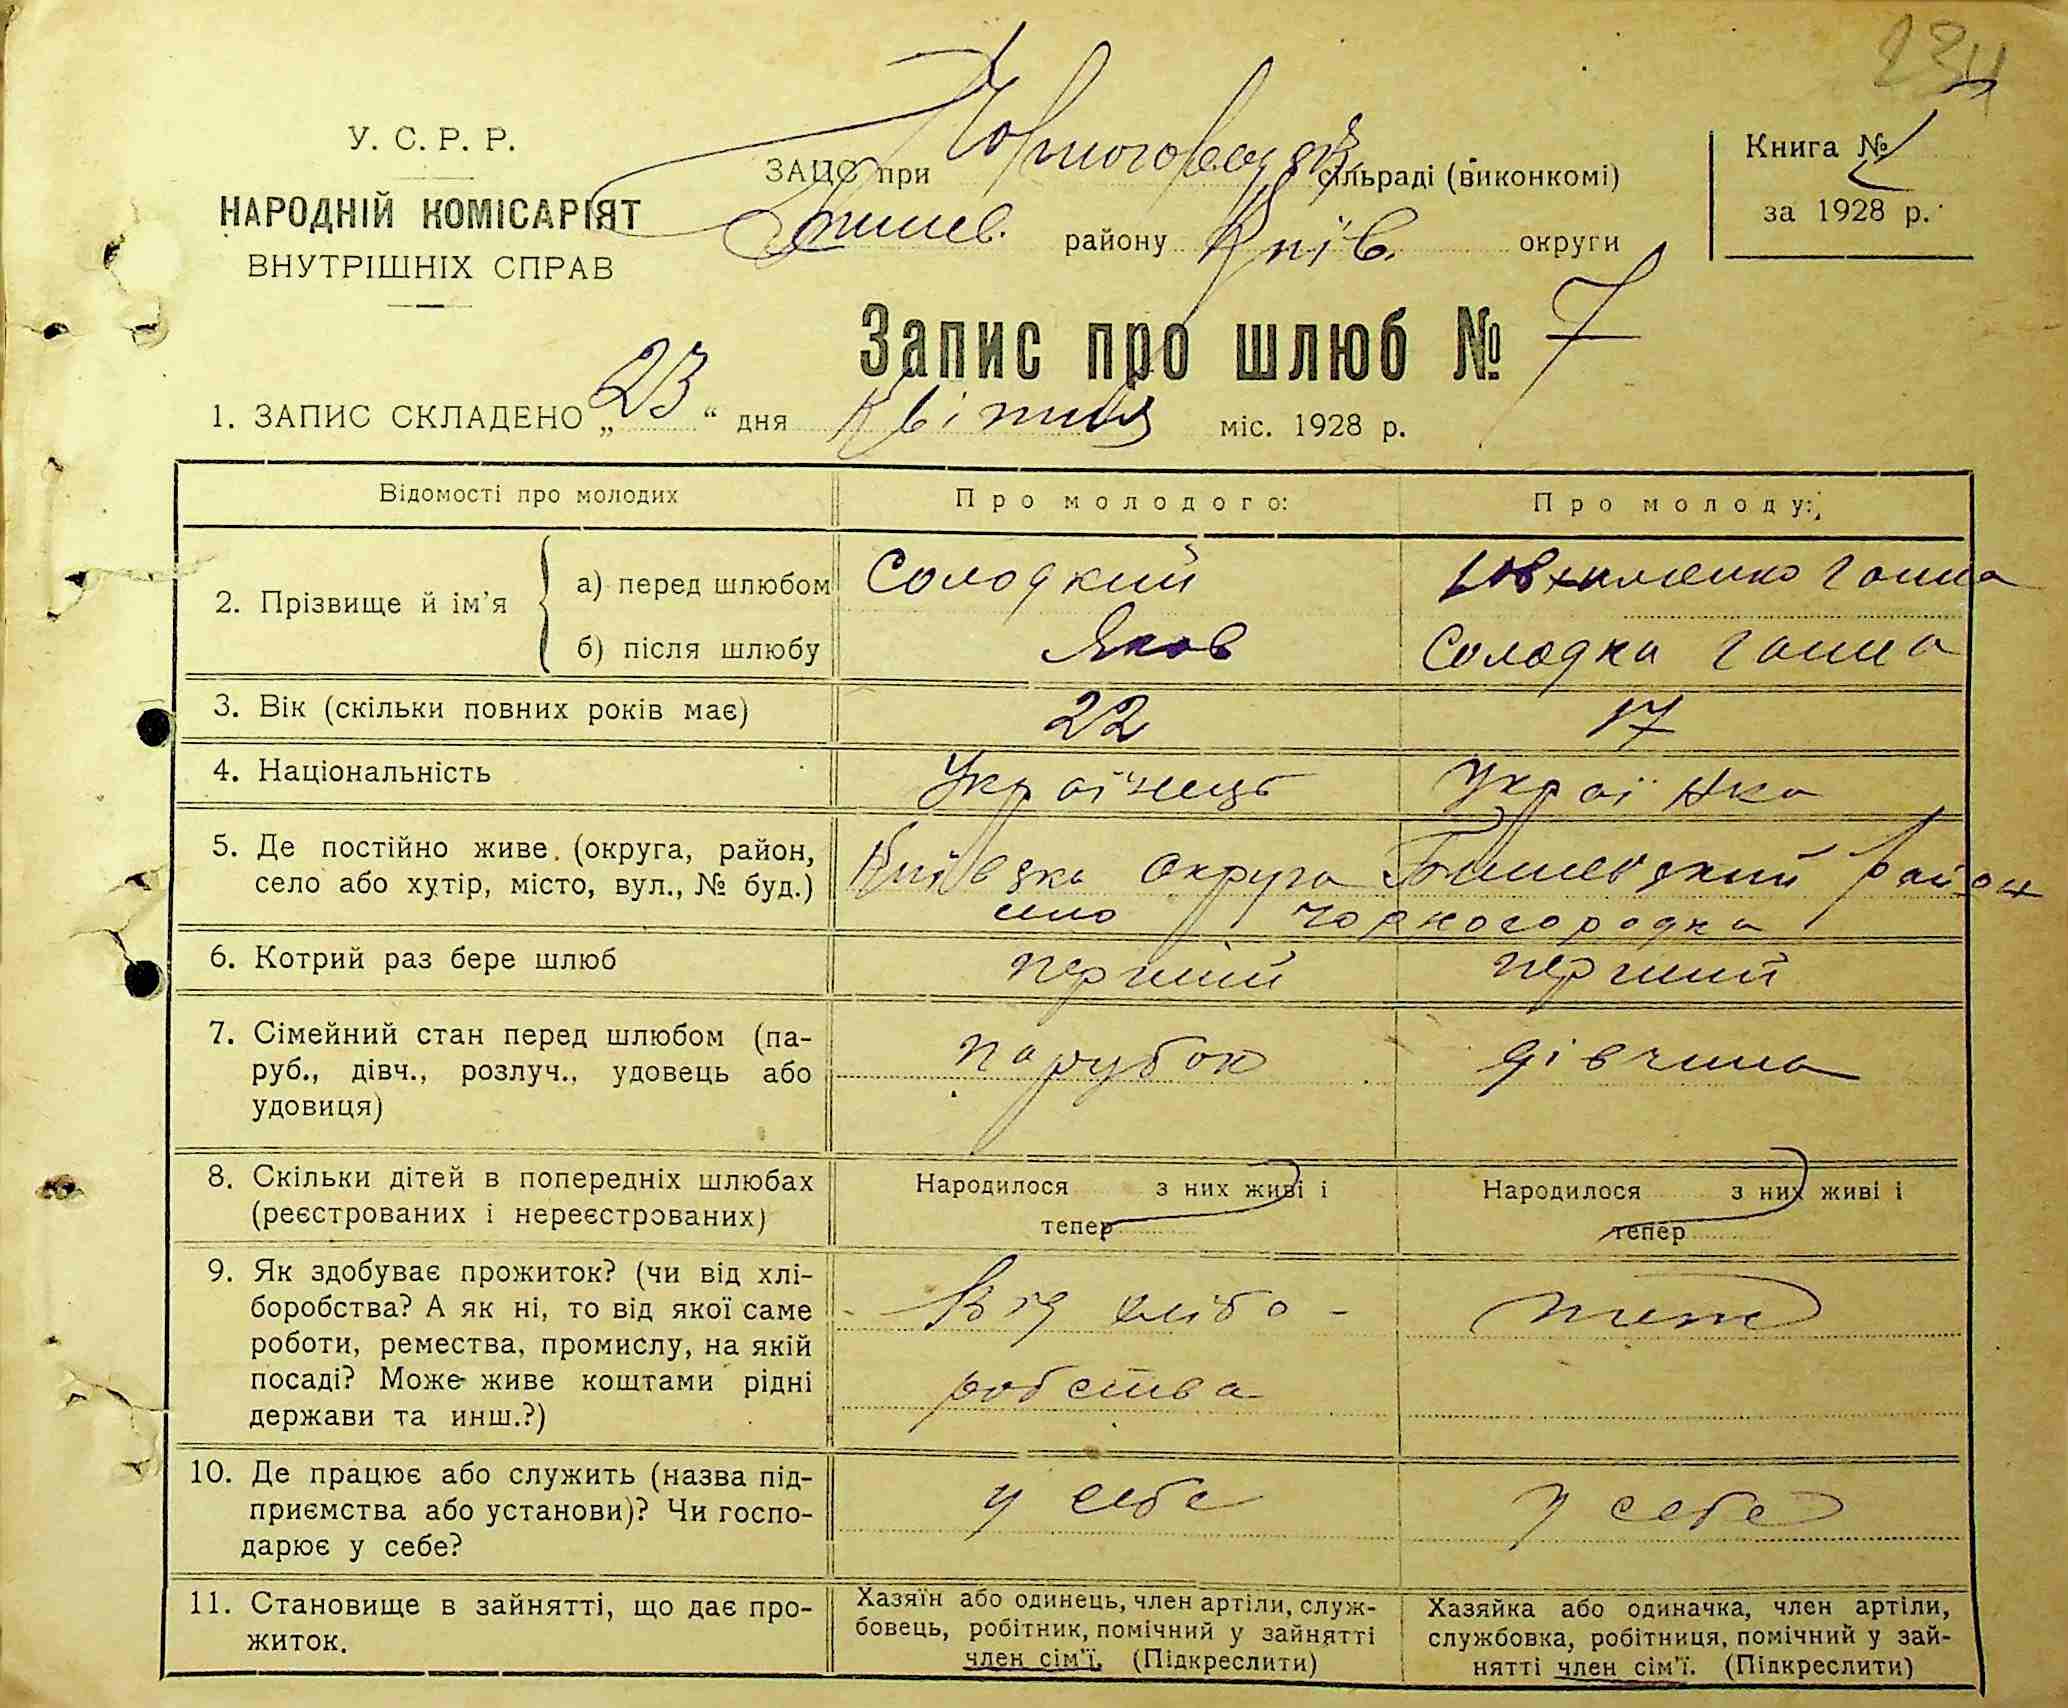 234
У. С. Р. Р.
НАРОДНІЙ КОМІСАРІЯТ
ВНУТРІШНІХ СПРАВ
ЗАЦС при Чорногородській сільраді (виконкомі)
Бишев. району Київ. округи
Книга №
за 1928 р.
Запис про шлюб № 7
1. ЗАПИС СКЛАДЕНО „23“ дня Квітня міс. 1928 р.
Відомості про молодих Про молодого: Про молоду:
2. Прізвище й ім'я а) перед шлюбом Солодкий Ганна
б) після шлюбу Яков Солодка Ганна
3. Вік (скільки повних років має) 22 17
4. Національність Українець Українка
5. Де постійно живе (округа, район, Київська округа Бишевський район
село або хутір, місто, вул., № буд.) село Чорногородка
6. Котрий раз бере шлюб перший перший
7. Сімейний стан перед шлюбом (па- парубок дівчина
руб., дівч., розлуч., удовець або
удовиця)
8. Скільки дітей в попередніх шлюбах Народилося з них живі і Народилося з них живі і
(реєстрованих і нереєстрованих) тепер тепер
9. Як здобуває прожиток? (чи від хлі-
боробства? А як ні, то від якої саме Від хлібо- теж
роботи, ремества, промислу, на якій
посаді? Може живе коштами рідні робства
держави та инш.?)
10. Де працює або служить (назва під- у себе у себе
приємства або установи)? Чи госпо-
дарює у себе?
11. Становище в зайнятті, що дає про- Хазяїн або одинець, член артіли, служ- Хазяйка або одиначка, член артіли,
житок. бовець, робітник, помічний у зайнятті службовка, робітниця, помічний у зай-
член сім'ї. (Підкреслити) нятті член сім'ї. (Підкреслити)